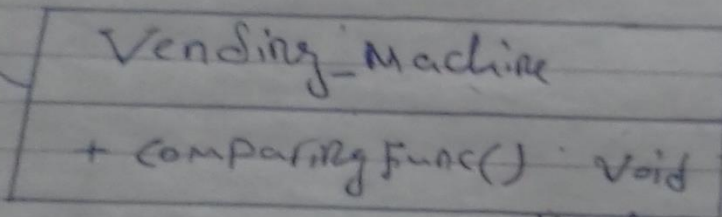 Vending_Machine
+ comparingFunc() : Void